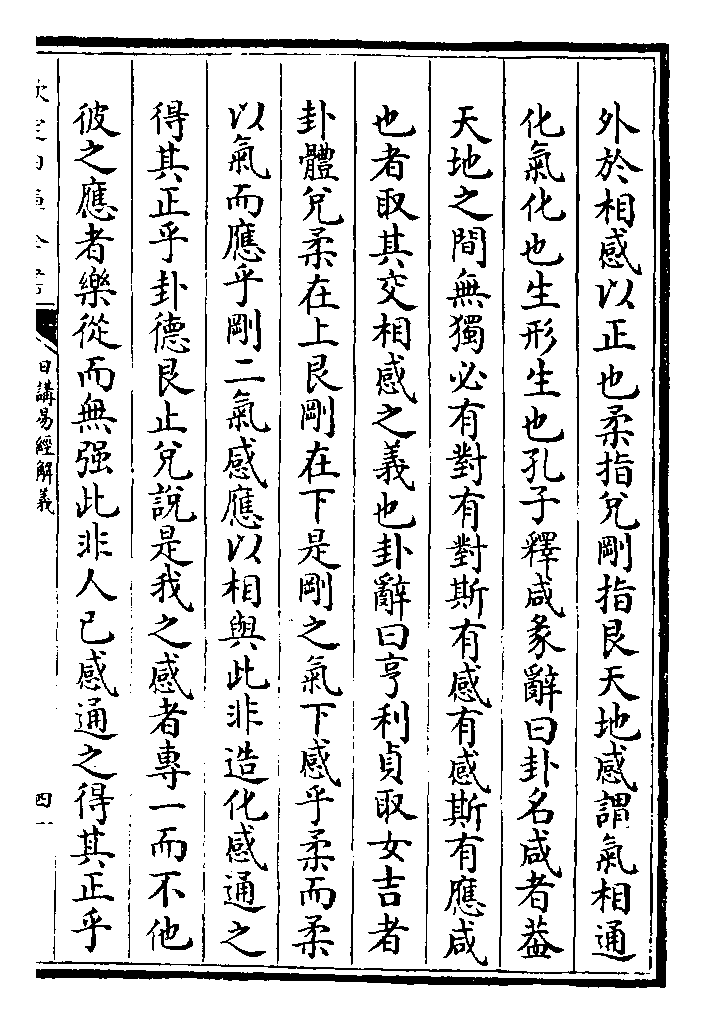 外於相感以正也柔指兌剛指艮天地感謂氣相通
化氣化也生形生也孔子釋咸彖辭曰卦名咸者葢
天地之間無獨必有對有對斯有感有感斯有應咸
也者取其交相感之義也卦辭曰亨利貞取女吉者
卦體兌柔在上艮剛在下是剛之氣下感乎柔而柔
以氣而應乎剛二氣感應以相與此非造化感通之
得其正乎卦德艮止兌說是我之感者專一而不他
彼之應者樂從而無强此非人已感通之得其正乎
日講易經解義
四